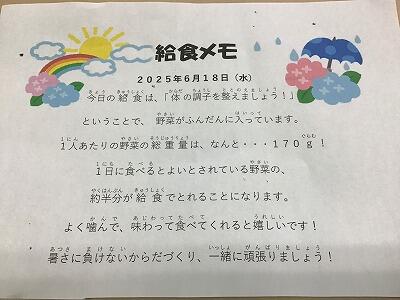 給食メモ
2025年6月18日（水）
今日の給食は、「体の調子を整えましょう！」
ということで、野菜がふんだんに入っています。
1人あたりの野菜の総重量は、なんと・・・170g！
1日に食べるとよいとされている野菜の、
約半分が給食でとれることになります。
よく噛んで、味わって食べてくれると嬉しいです！
暑さに負けないからだづくり、一緒に頑張りましょう！